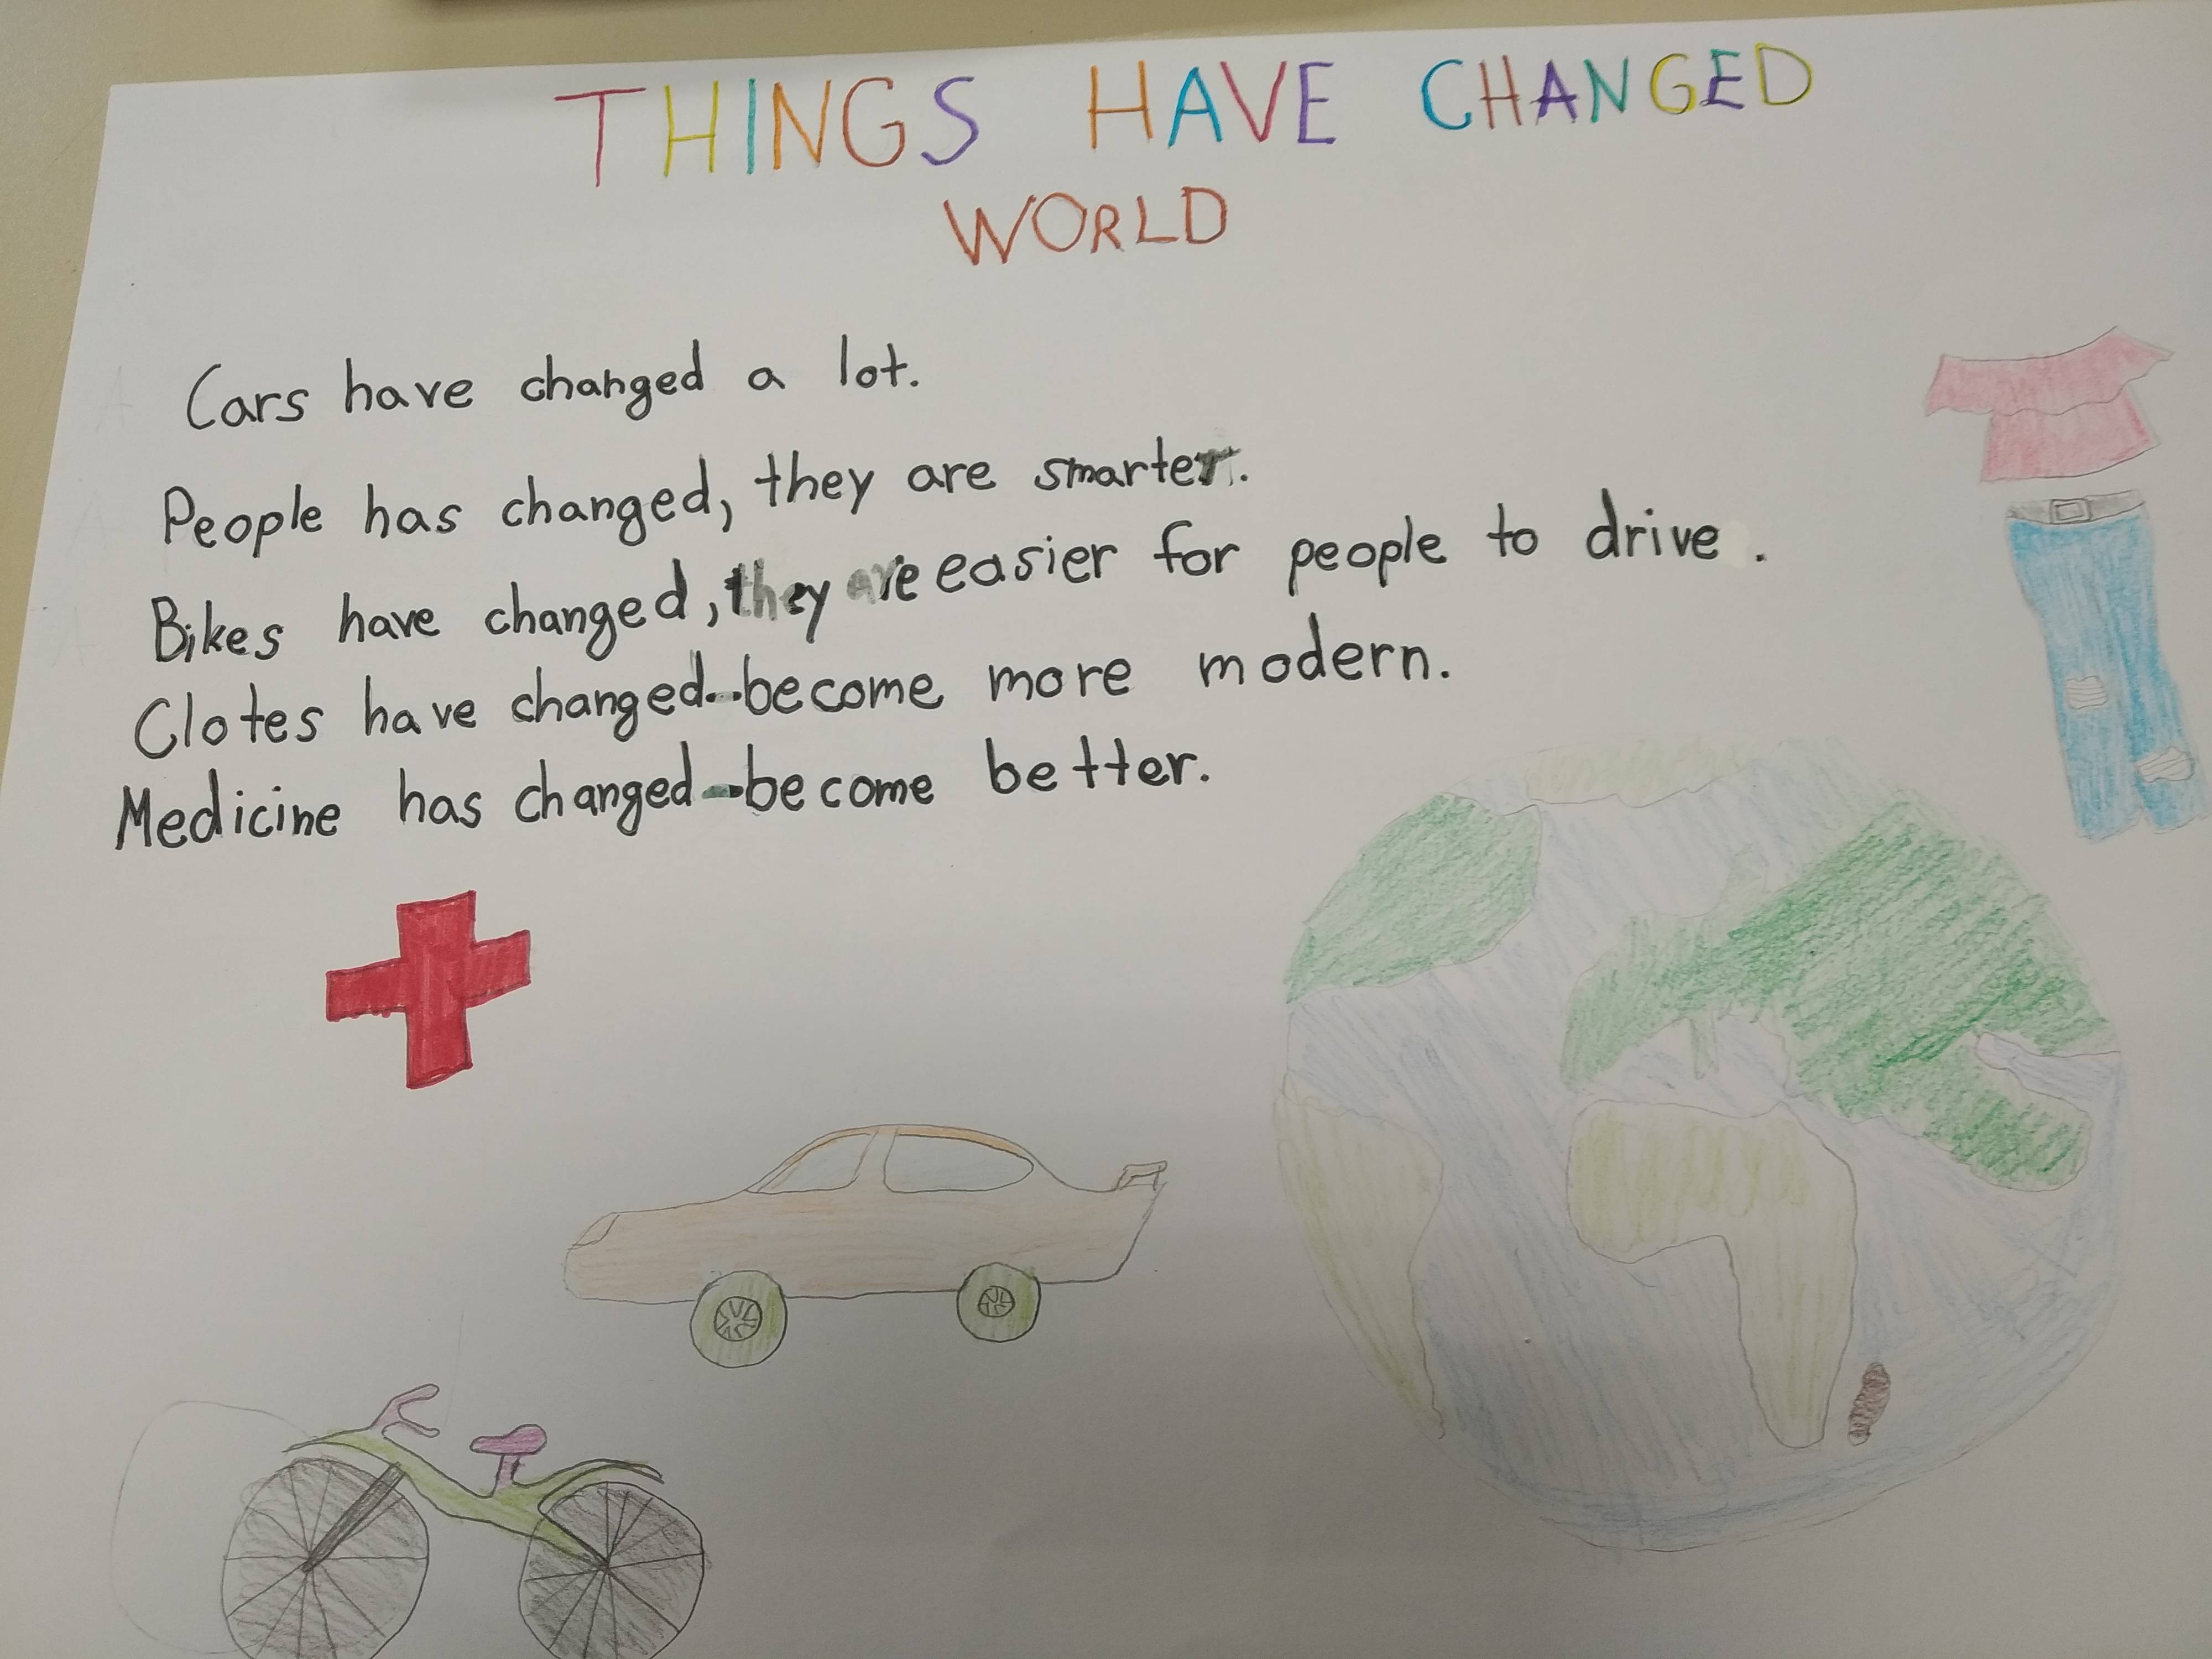 THINGS HAVE CHANGED
WORLD
Cars have changed a lot.
People has changed, they are smarter.
Bikes have changed, they are easier for people to drive.
Clotes have changed--become more modern.
Medicine has changed--become better.